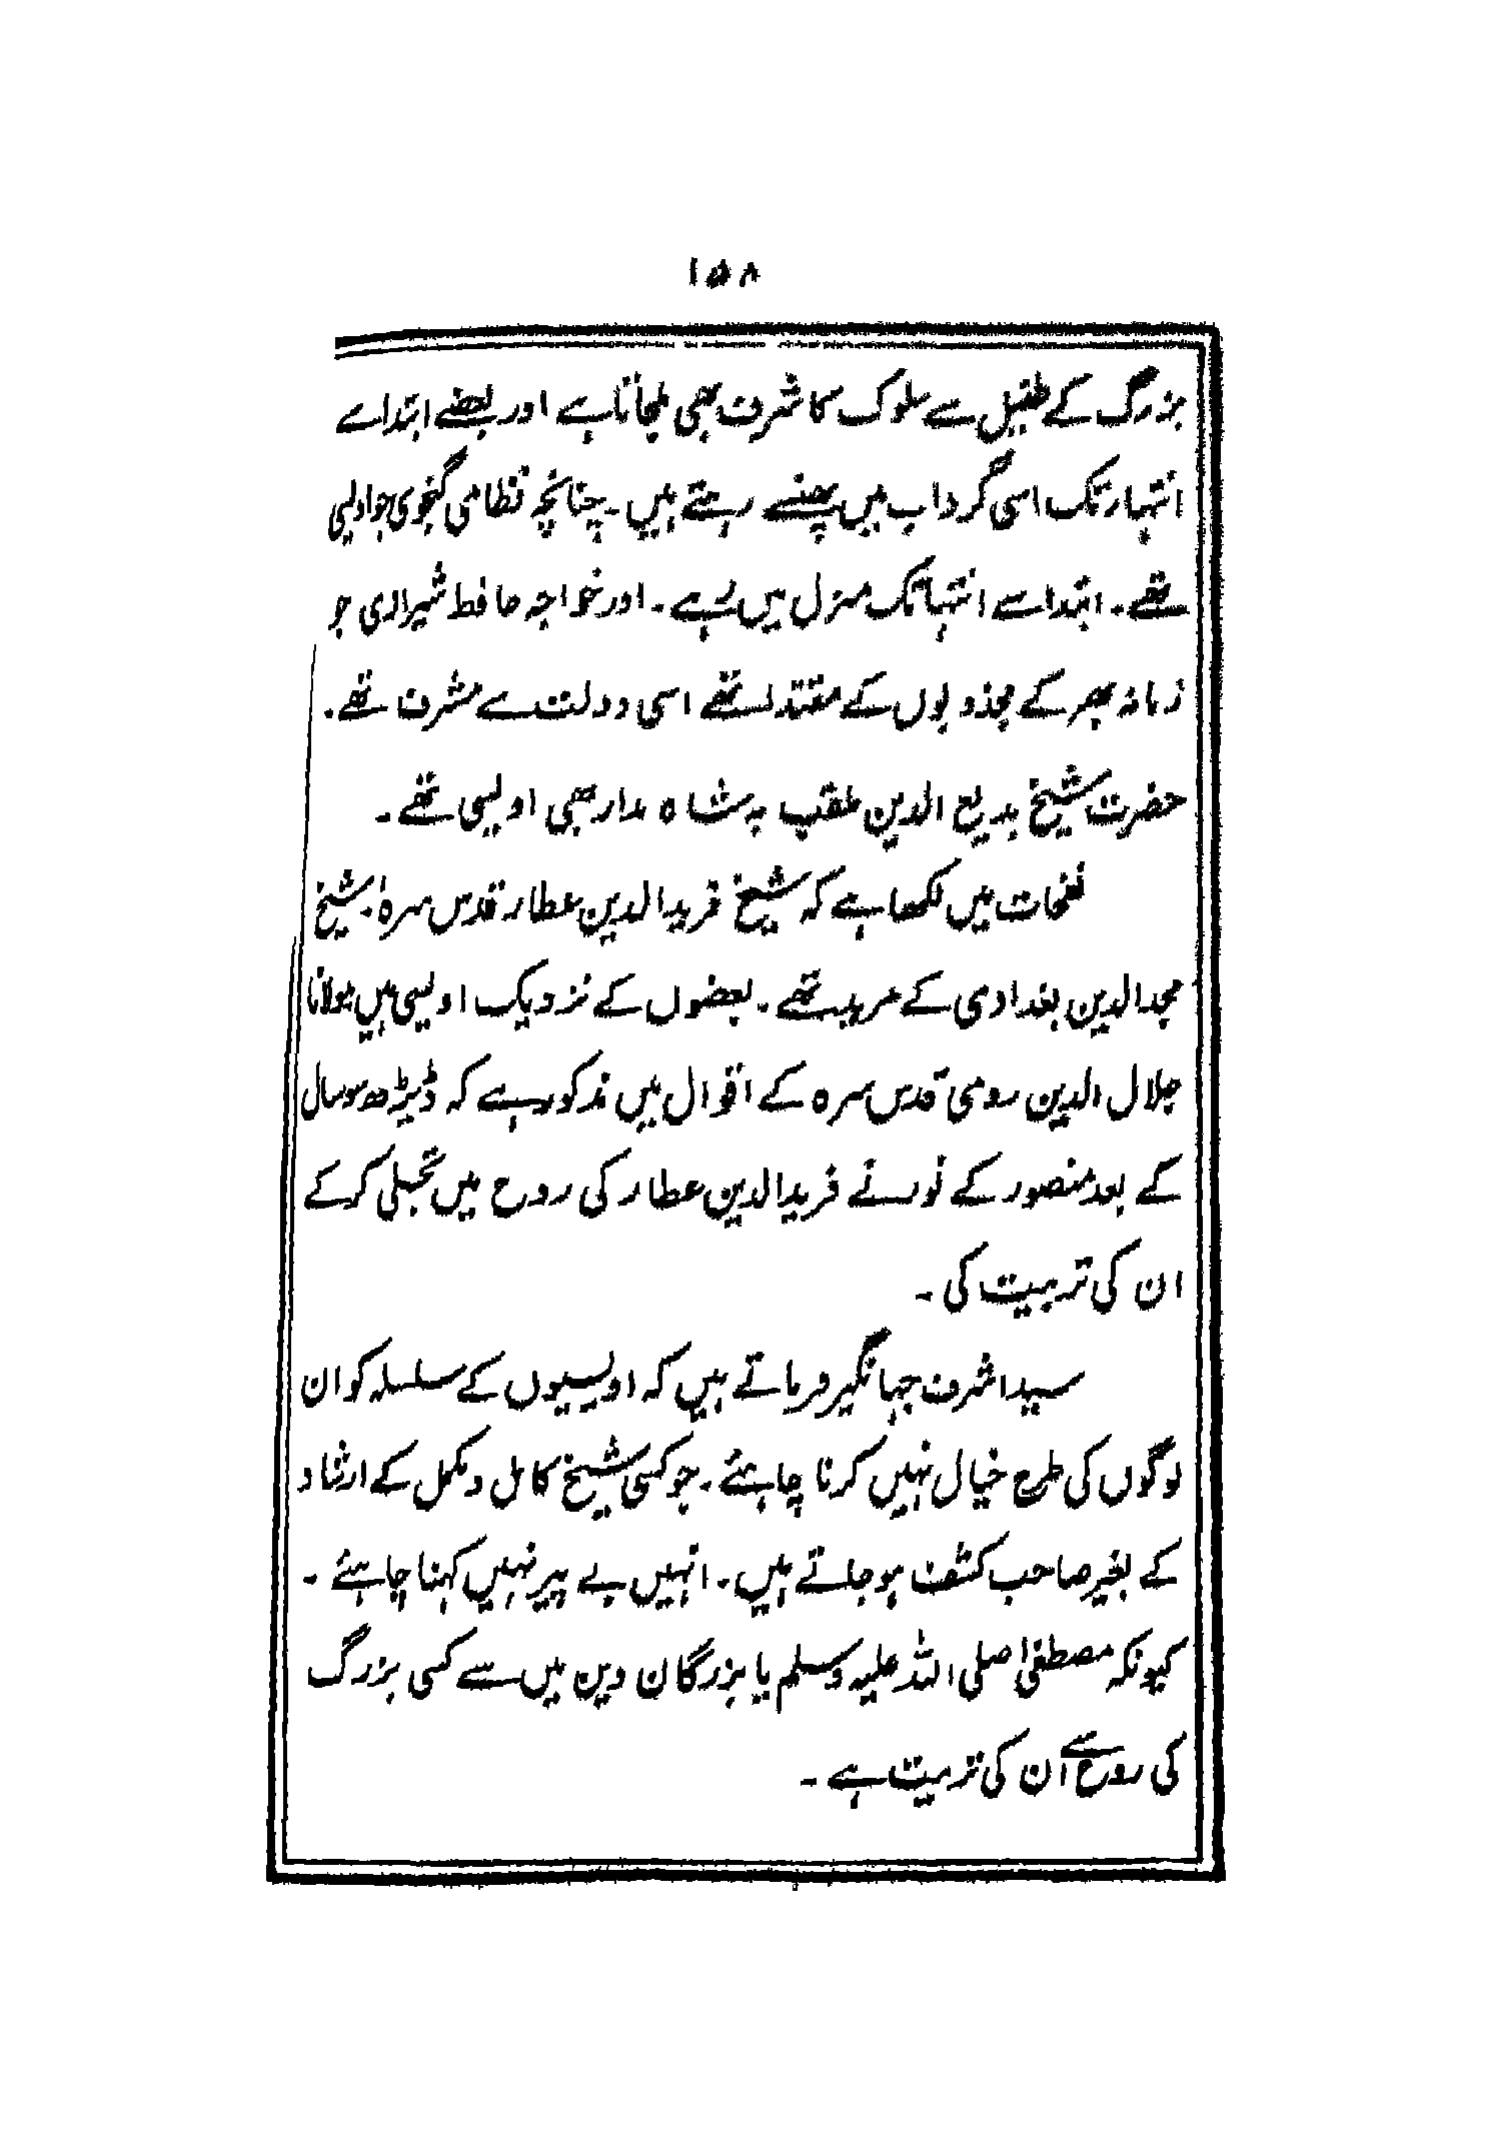 ۱۵۸
بزرگ کے طفیل سے سلوک کا شرف بھی ملجاتا ہے اور بعضے ابتدا سے
انتہا تک اسی گرداب میں پھنسے رہتے ہیں۔ چنانچہ نظامی گنجوی جو اویسی
تھے۔ ابتدا سے انتہا تک منزل میں رہے۔ اور خواجہ حافظ شیرازی جو
زمانہ بھر کے مجذوبوں کے مقتدا تھے اسی دولت سے مشرف تھے۔
حضرت شیخ بدیع الدین ملقب بہ شاہ مدار بھی اویسی تھے۔
نفحات میں لکھا ہے کہ شیخ فریدالدین عطار قدس سرہٗ شیخ
مجدالدین بغدادی کے مرید تھے۔ بعضوں کے نزدیک اویسی ہیں مولانا
جلال الدین رومی قدس سرہ کے اقوال میں مذکور ہے کہ ڈیڑھ سو سال
کے بعد منصور کے نور نے فریدالدین عطار کی روح میں تجلی کر کے
ان کی تربیت کی۔
سید اشرف جہانگیر فرماتے ہیں کہ اویسیوں کے سلسلہ کو ان
لوگوں کی طرح خیال نہیں کرنا چاہئے۔ جو کسی شیخ کامل و مکمل کے ارشاد
کے بغیر صاحب کشف ہو جاتے ہیں۔ انہیں بے پیر نہیں کہنا چاہئے۔
کیونکہ مصطفیٰ صلی اللہ علیہ وسلم یا بزرگان دین میں سے کسی بزرگ
کی روح سے ان کی تربیت ہے۔